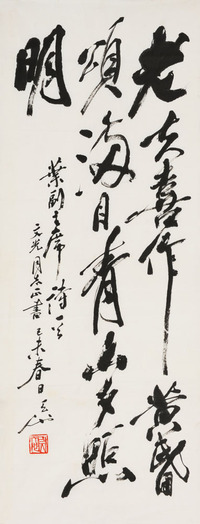 老夫喜作黄昏
頌滿目青山夕照
明
葉副主席詩
文光同志正書己未春日